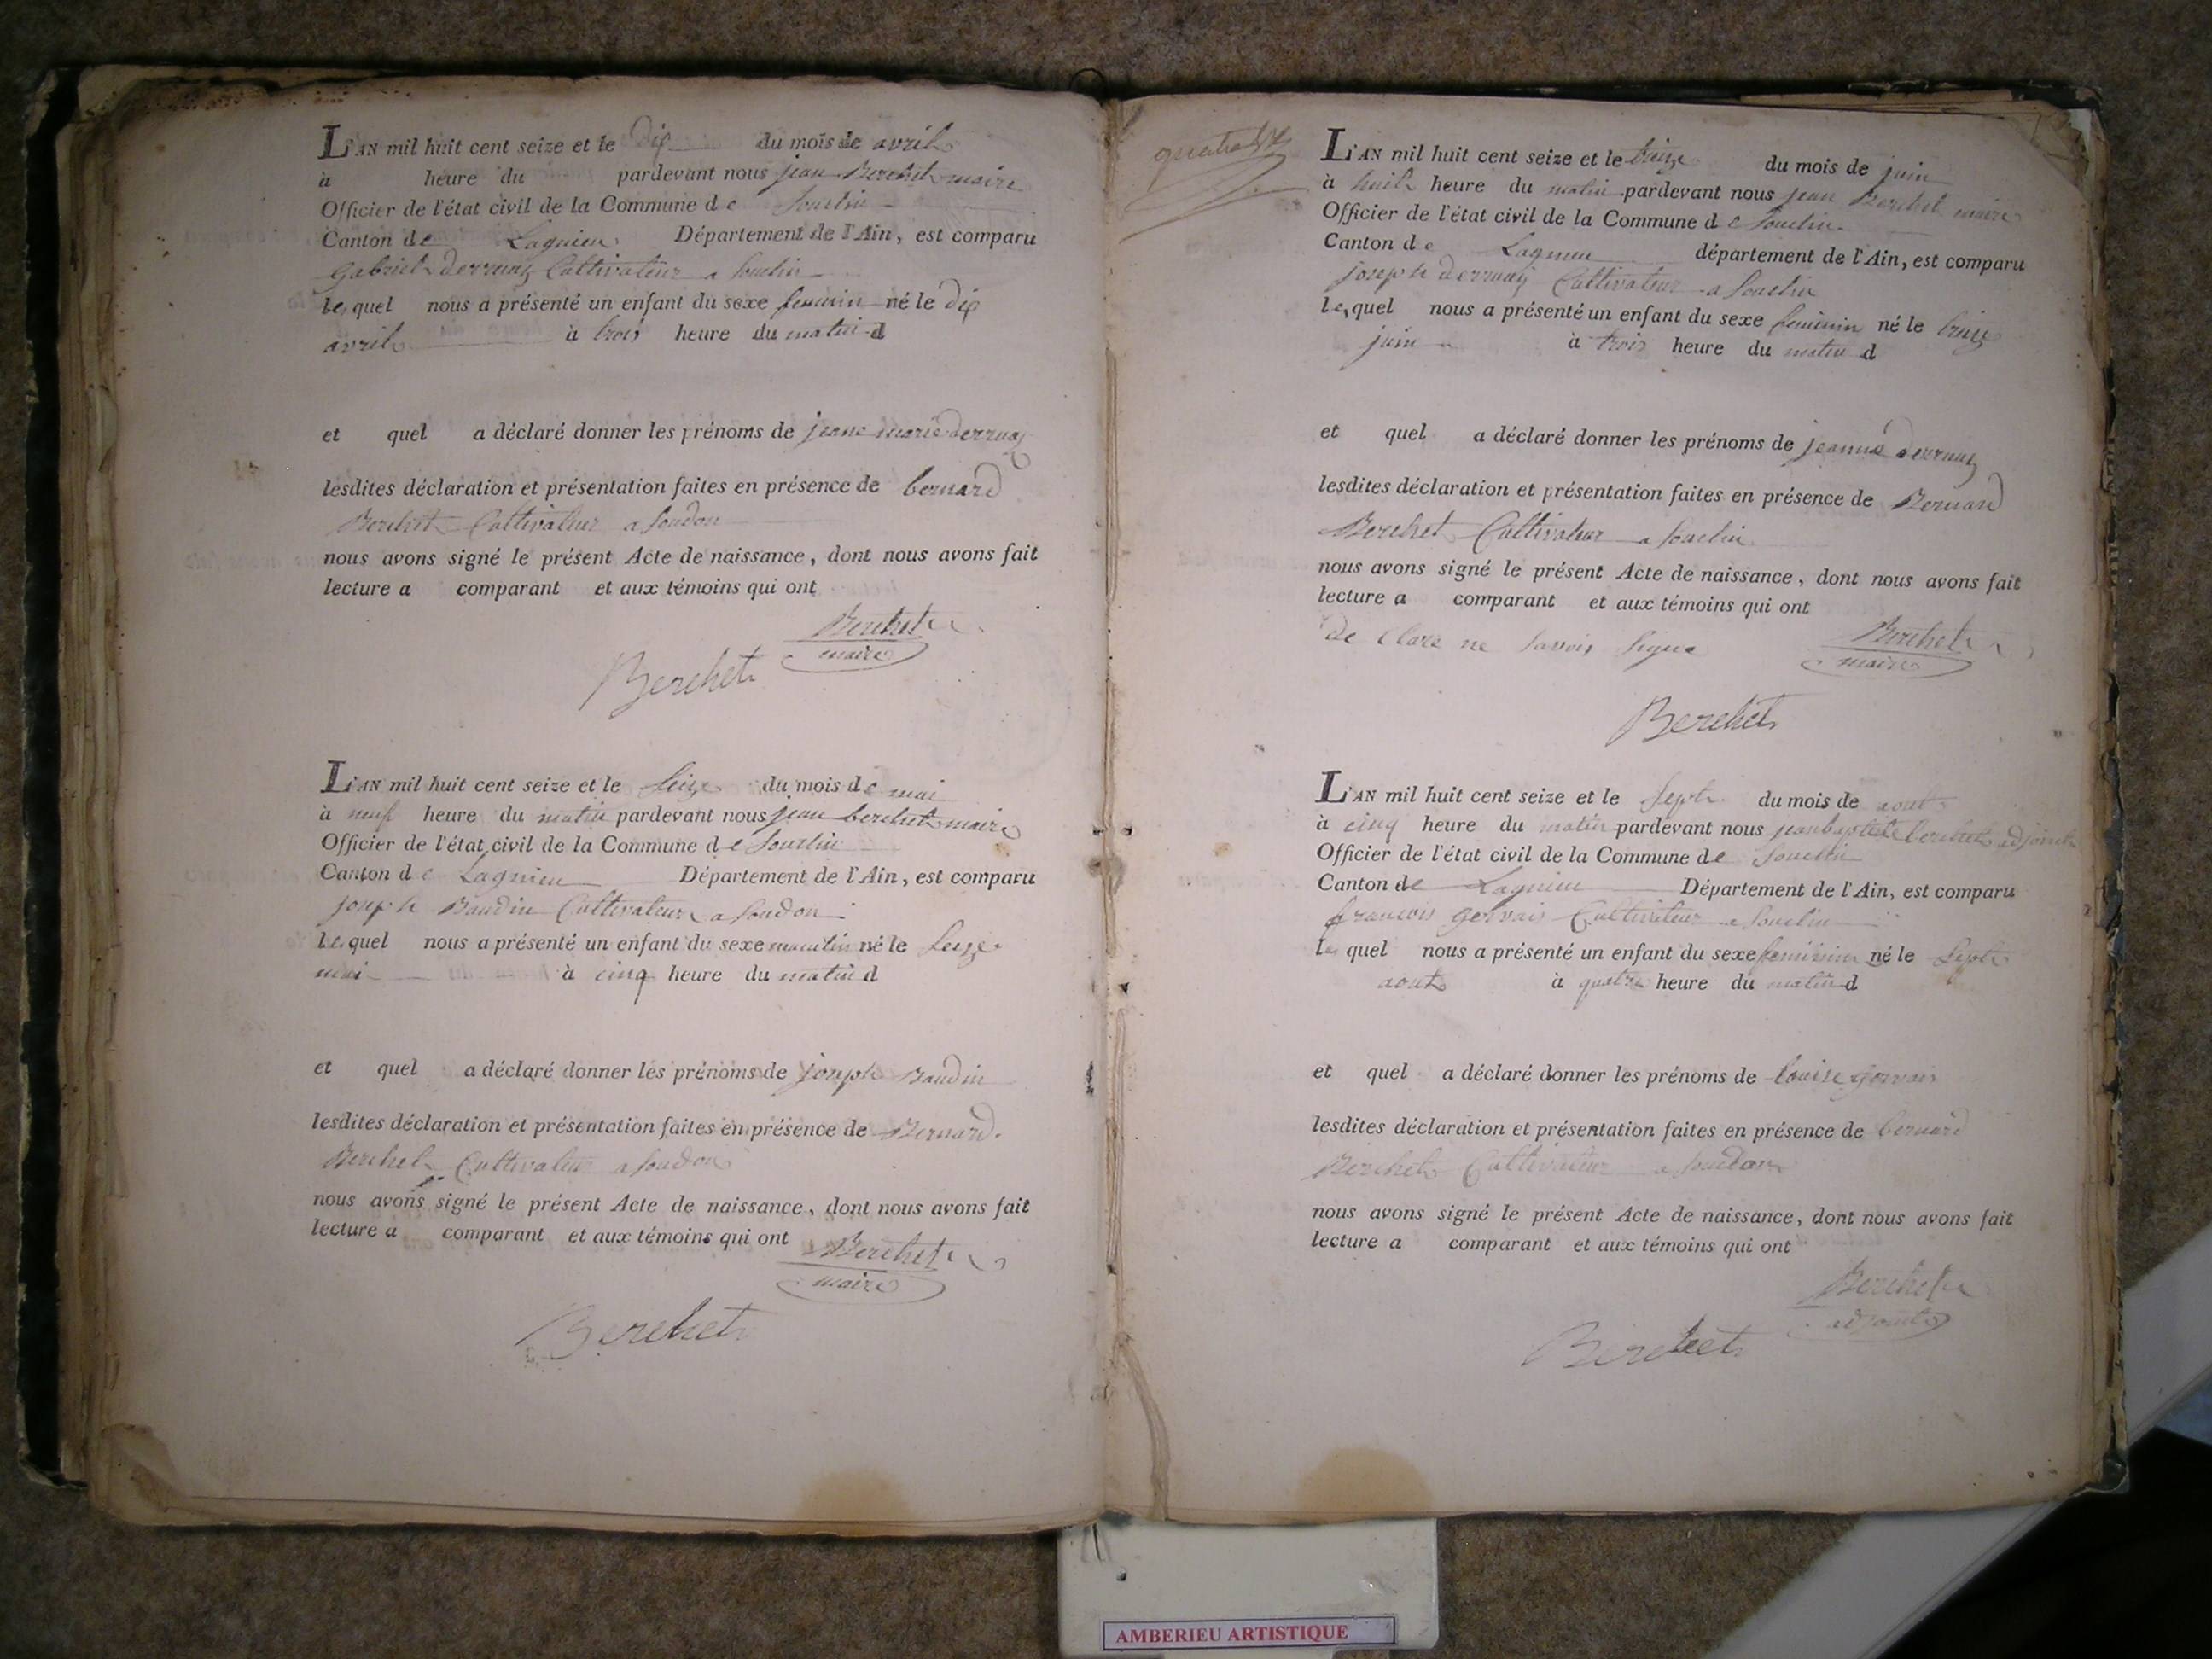 L'AN mil huit cent seize et le dix du mois de avril
à heure du pardevant nous jean Berchet maire
Officier de l'état civil de la Commune de Souclin
Canton de Lagnieu Département de l'Ain, est comparu
Gabriel derruaz Cultivateur a Souclin
lequel nous a présenté un enfant du sexe feminin né le dix
avril à trois heure du matin d
et quel a déclaré donner les prénoms de jeane marie derruaz
lesdites déclaration et présentation faites en présence de bernard
Berchet Cultivateur a Soudon
nous avons signé le présent Acte de naissance, dont nous avons fait
lecture a comparant et aux témoins qui ont
Berchet
maire
Berchet
L'AN mil huit cent seize et le Seize du mois de mai
à neuf heure du matin pardevant nous jean berchet maire
Officier de l'état civil de la Commune de Souclin
Canton de Lagnieu Département de l'Ain, est comparu
joseph Baudin Cultivateur a Soudon
lequel nous a présenté un enfant du sexe masculin né le Seize
mai à cinq heure du matin d
et quel a déclaré donner les prénoms de joseph Baudin
lesdites déclaration et présentation faites en présence de Bernard
Berchet Cultivateur a Soudon
nous avons signé le présent Acte de naissance, dont nous avons fait
lecture a comparant et aux témoins qui ont
Berchet
maire
Berchet
L'AN mil huit cent seize et le treize du mois de juin
à huit heure du matin pardevant nous jean Berchet maire
Officier de l'état civil de la Commune de Souclin
Canton de Lagnieu département de l'Ain, est comparu
joseph derruaz Cultivateur a Souclin
lequel nous a présenté un enfant du sexe feminin né le treize
juin à trois heure du matin d
et quel a déclaré donner les prénoms de jeanne derruaz
lesdites déclaration et présentation faites en présence de Bernard
Berchet Cultivateur a Souclin
nous avons signé le présent Acte de naissance, dont nous avons fait
lecture a comparant et aux témoins qui ont
de Clare ne Savoir Signe
Berchet
maire
Berchet
L'AN mil huit cent seize et le Sept du mois de aout
à cinq heure du matin pardevant nous jean baptiste berchet adjoint
Officier de l'état civil de la Commune de Souclin
Canton de Lagnieu Département de l'Ain, est comparu
francois gervais Cultivateur a Souclin
le quel nous a présenté un enfant du sexe feminin né le Sept
aout à quatre heure du matin d
et quel a déclaré donner les prénoms de louise gervais
lesdites déclaration et présentation faites en présence de bernard
Berchet Cultivateur a Soudon
nous avons signé le présent Acte de naissance, dont nous avons fait
lecture a comparant et aux témoins qui ont
Berchet
adjoint
Berchet
AMBERIEU ARTISTIQUE